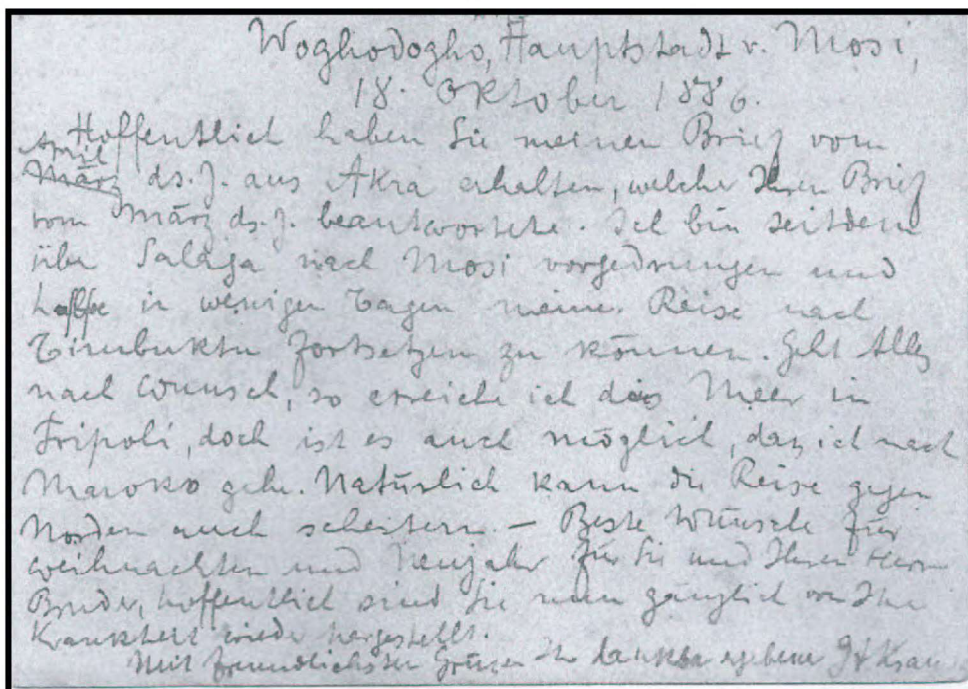 Woghodogho, Hauptstadt v. Mosi,
18. Oktober 1886.
Hoffentlich haben Sie meinen Brief vom
April
März ds. J. aus Akra erhalten, welcher Ihren Brief
vom März ds. J. beantwortete. Ich bin seitdem
über Salaga nach Mosi vorgedrungen und
hoffe in wenigen Tagen meine Reise nach
Timbuktu fortsetzen zu können. Geht Alles
nach Wunsch, so erreiche ich das Meer in
Tripoli, doch ist es auch möglich, daß ich nach
Maroko gehe. Natürlich kann die Reise gegen
Norden auch scheitern. — Beste Wünsche für
Weihnachten und Neujahr für Sie und Ihren Herrn
Bruder, hoffentlich sind Sie nun gänzlich von Ihrer
Krankheit wieder hergestellt.
Mit freundlichsten Grüßen Ihr dankbar ergebener